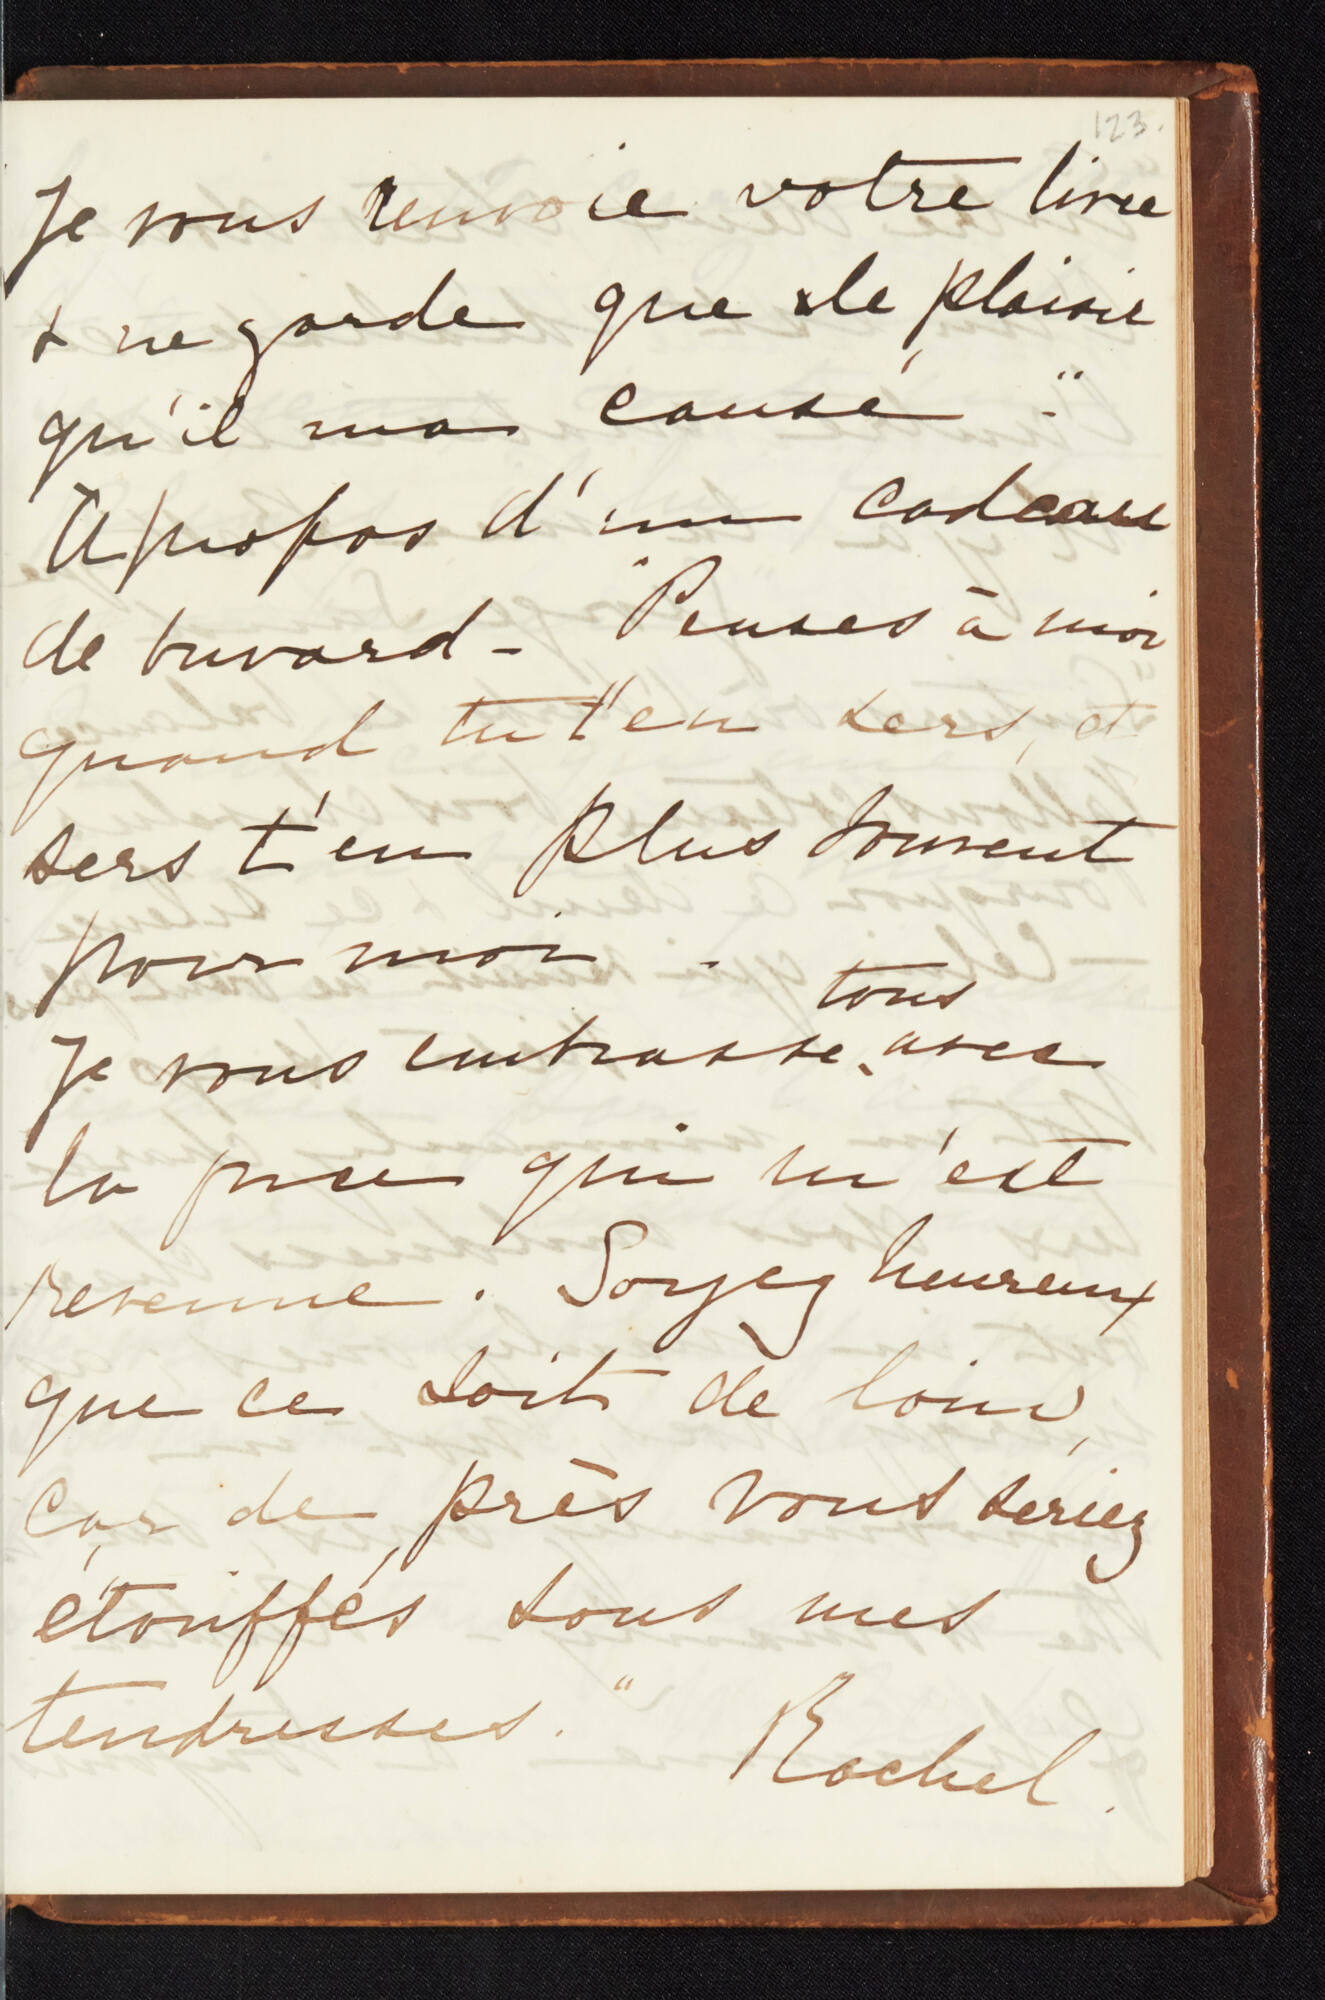 123.
Je vous renvoie votre livre
& ne garde que le plaisir
qu'il ma causé."
À propos d'un cadeau
de buvard - "Penses à moi
quand tu t'en sers, et
sers t'en plus souvent
pour moi.
Je vous embrasse tous avec
la puce qui m'est
revenue. Soyez heureux
que ce soit de loin,
car de près vous seriez
étouffés sous mes
tendresses."
Rachel.